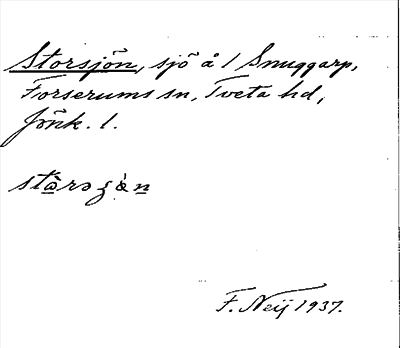 Storsjön, sjö å / Snuggarp,
Forserums sn, Tveta hd,
Jönk. l.
F. Neij 1937.